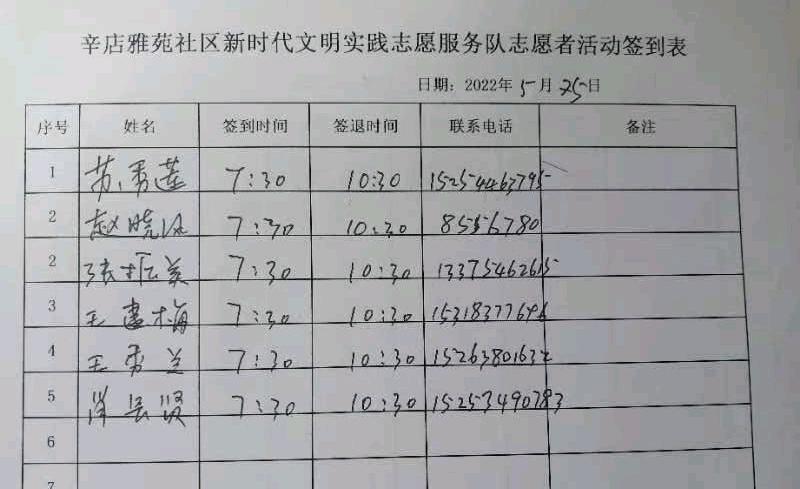 辛店雅苑社区新时代文明实践志愿服务队志愿者活动签到表
日期：2022年 5月 25日
序号 姓名 签到时间 签退时间 联系电话 备注
1 苏秀莲 7:30 10:30 15254463795
2 赵晓风 7:30 10:30 8556780
2 张振美 7:30 10:30 13375462615
3 王建梅 7:30 10:30 15318377696
4 王秀兰 7:30 10:30 15263801632
5 7:30 10:30 15253490783
6
7